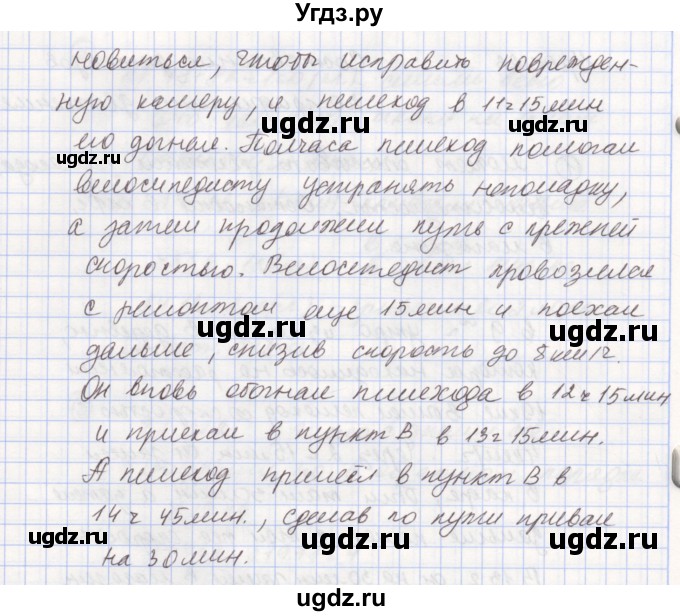 Угдз.ру
новиться, чтобы исправить поврежден-
ную камеру, и пешеход в 11 ч 15 мин
его догнал. Полчаса пешеход помогал
велосипедисту устранять неполадку,
а затем продолжил путь с прежней
скоростью. Велосипедист провозился
с ремонтом еще 15 мин и поехал
дальше, снизив скорость до 8 км/ч.
Он вновь обогнал пешехода в 12 ч 15 мин
и приехал в пункт В в 13 ч 15 мин.
А пешеход пришёл в пункт В в
14 ч 45 мин., сделав по пути привал
на 30 мин.
ugdz.ru
ugdz.ru
ugdz.ru
ugdz.ru
ugdz.ru
ugdz.ru
ugdz.ru
ugdz.ru
ugdz.ru
ugdz.ru
ugdz.ru
ugdz.ru
ugdz.ru